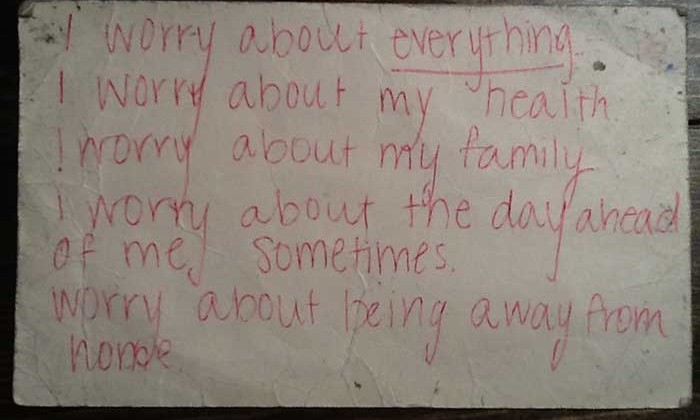 I worry about everything.
I worry about my health
I worry about my family
I worry about the day ahead
of me, sometimes.
worry about being away from
home.